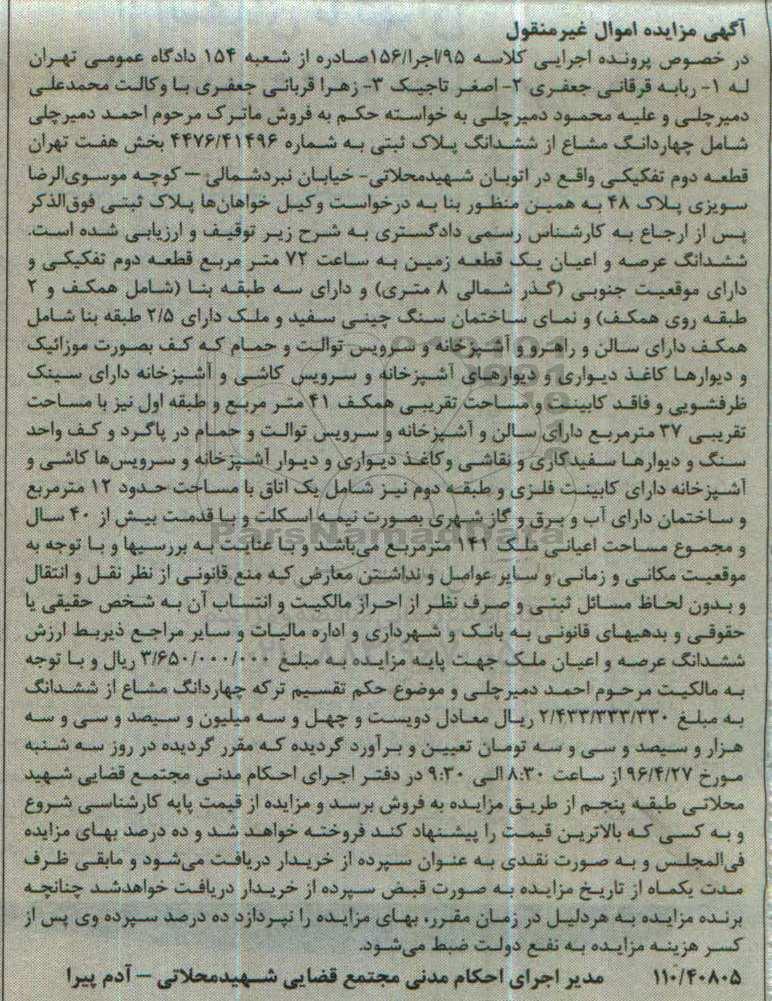 آگهی مزایده اموال غیرمنقول
در خصوص پرونده اجرایی کلاسه ۹۵/اجرا/۱۵۶صادره از شعبه ۱۵۴ دادگاه عمومی تهران
له ۱- ربابه قرقانی جعفری ۲- اصغر تاجیک ۳- زهرا قربانی جعفری با وکالت محمدعلی
دمیرچلی و علیه محمود دمیرچلی به خواسته حکم به فروش ماترک مرحوم احمد دمیرچلی
شامل چهاردانگ مشاع از ششدانگ پلاک ثبتی به شماره ۴۴۷۶/۴۱۴۹۶ بخش هفت تهران
قطعه دوم تفکیکی واقع در اتوبان شهیدمحلاتی- خیابان نبردشمالی – کوچه موسوی‌الرضا
سویزی پلاک ۴۸ به همین منظور بنا به درخواست وکیل خواهان‌ها پلاک ثبتی فوق‌الذکر
پس از ارجاع به کارشناس رسمی دادگستری به شرح زیر توقیف و ارزیابی شده است.
ششدانگ عرصه و اعیان یک قطعه زمین به ساعت ۷۲ متر مربع قطعه دوم تفکیکی و
دارای موقعیت جنوبی (گذر شمالی ۸ متری) و دارای سه طبقه بنا (شامل همکف و ۲
طبقه روی همکف) و نمای ساختمان سنگ چینی سفید و ملک دارای ۲/۵ طبقه بنا شامل
همکف دارای سالن و راهرو و آشپزخانه و سرویس توالت و حمام که کف بصورت موزائیک
و دیوارها کاغذ دیواری و دیوارهای آشپزخانه و سرویس کاشی و آشپزخانه دارای سینک
ظرفشویی و فاقد کابینت و مساحت تقریبی همکف ۴۱ متر مربع و طبقه اول نیز با مساحت
تقریبی ۳۷ مترمربع دارای سالن و آشپزخانه و سرویس توالت و حمام در پاگرد و کف واحد
سنگ و دیوارها سفیدکاری و نقاشی وکاغذ دیواری و دیوار آشپزخانه و سرویس‌ها کاشی و
آشپزخانه دارای کابینت فلزی و طبقه دوم نیز شامل یک اتاق با مساحت حدود ۱۲ مترمربع
و ساختمان دارای آب و برق و گاز شهری بصورت نیمه اسکلت و با قدمت بیش از ۴۰ سال
و مجموع مساحت اعیانی ملک ۱۴۱ مترمربع می‌باشد و با عنایت به بررسیها و با توجه به
موقعیت مکانی و زمانی و سایر عوامل و نداشتن معارض که منع قانونی از نظر نقل و انتقال
و بدون لحاظ مسائل ثبتی و صرف نظر از احراز مالکیت و انتساب آن به شخص حقیقی یا
حقوقی و بدهیهای قانونی به بانک و شهرداری و اداره مالیات و سایر مراجع ذیربط ارزش
ششدانگ عرصه و اعیان ملک جهت پایه مزایده به مبلغ ۳/۶۵۰/۰۰۰/۰۰۰ ریال و با توجه
به مالکیت مرحوم احمد دمیرچلی و موضوع حکم تقسیم ترکه چهاردانگ مشاع از ششدانگ
به مبلغ ۲/۴۳۳/۳۳۳/۳۳۰ ریال معادل دویست و چهل و سه میلیون و سیصد و سی و سه
هزار و سیصد و سی و سه تومان تعیین و برآورد گردیده که مقرر گردیده در روز سه شنبه
مورخ ۹۶/۴/۲۷ از ساعت ۸:۳۰ الی ۹:۳۰ در دفتر اجرای احکام مدنی مجتمع قضایی شهید
محلاتی طبقه پنجم از طریق مزایده به فروش برسد و مزایده از قیمت پایه کارشناسی شروع
و به کسی که بالاترین قیمت را پیشنهاد کند فروخته خواهد شد و ده درصد بهای مزایده
فی‌المجلس و به صورت نقدی به عنوان سپرده از خریدار دریافت می‌شود و مابقی ظرف
مدت یکماه از تاریخ مزایده به صورت قبض سپرده از خریدار دریافت خواهدشد چنانچه
برنده مزایده به هردلیل در زمان مقرر، بهای مزایده را نپردازد ده درصد سپرده وی پس از
کسر هزینه مزایده به نفع دولت ضبط می‌شود.
۱۱۰/۴۰۸۰۵ مدیر اجرای احکام مدنی مجتمع قضایی شهیدمحلاتی – آدم پیرا
ParsNamadData